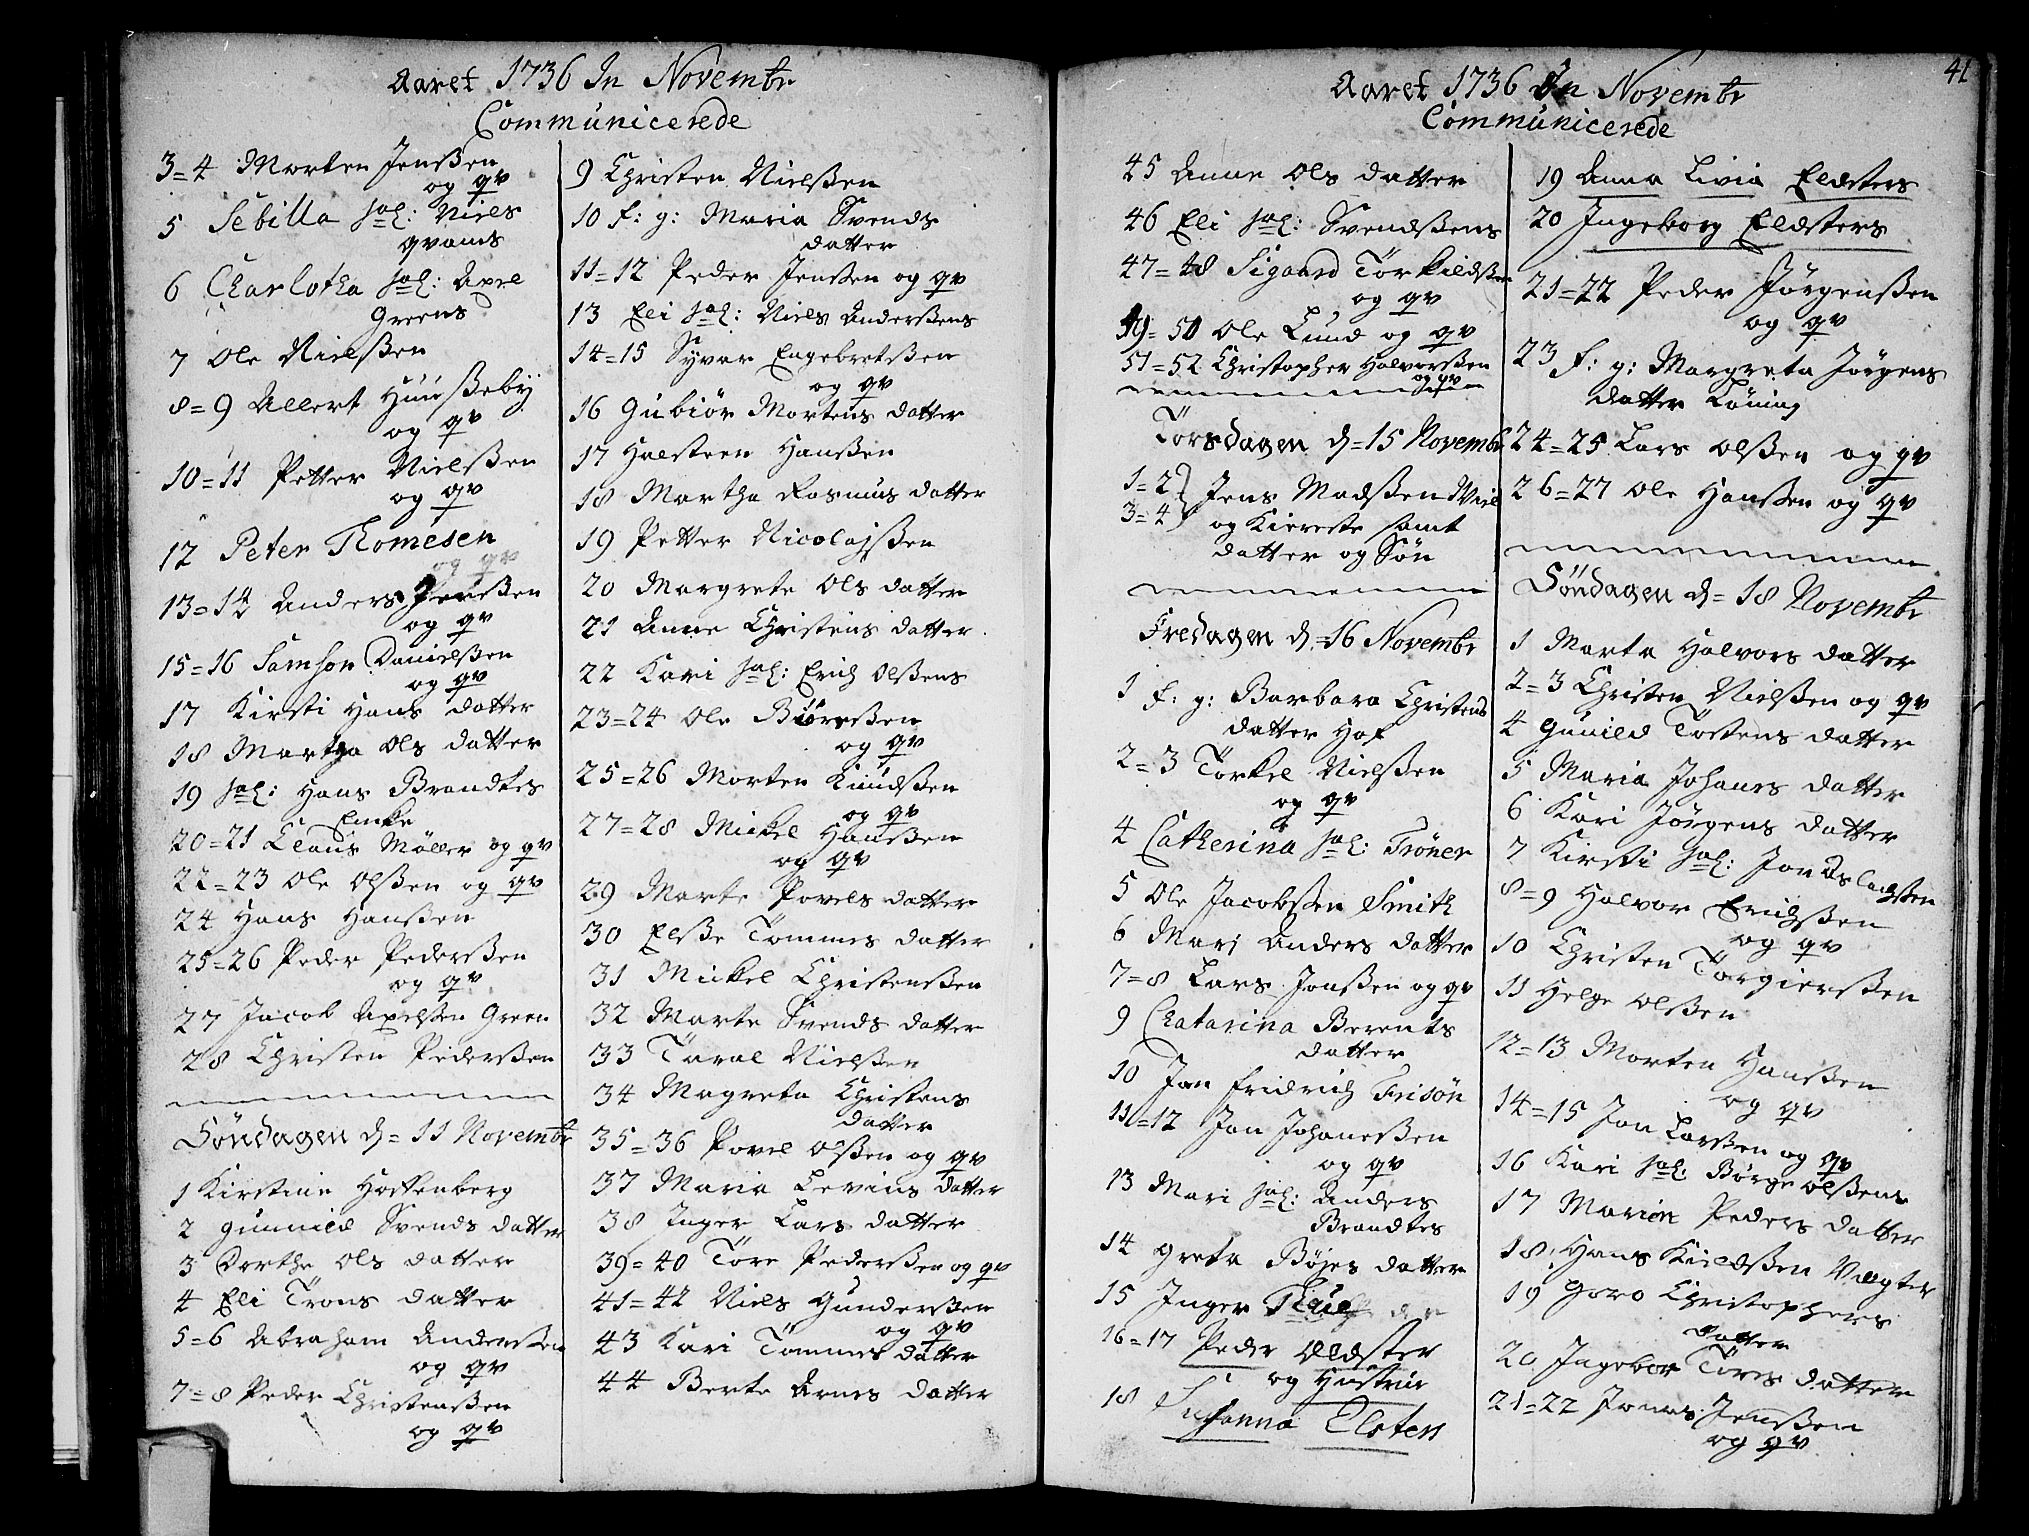 Aaret 1736 In Novembr
Communicerede
3=4 Morten Jenßen
og qv
5 Sebilla sal: Niels
qvams
6 Charlotha sal: Axel
Greens
7 Ole Nielßen
8=9 Allert Huusßebÿ
og qv
10=11 Petter Nielßen
og qv
12 Peter Thomesen
og qv
13=14 Anders Jenßen
og qv
15=16 Samson Danielßen
og qv
17 Kirsti Hans datter
18 Martha Ols datter
19 sal: Hans Brandtes
Encke
20=21 Claus Møller og qv
22=23 Ole Olßen og qv
24 Hans Hanßen
25=26 Peder Pederßen
og qv
27 Jacob Axelßen Green
28 Christen Pederßen
Søndagen d= 11 Novembr
1 Kirstine Hortenberg
2 Gunnild Svends datter
3 Dorthe Ols datter
4 Eli Trons datter
5=6 Abraham Anderßen
og qv
7=8 Peder Christenßen
og qv
9 Christen Nielßen
10 f: g: Maria Svends
datter
11=12 Peder Jenßen og qv
13 Eli sal: Niels Anderßens
14=15 Syver Engebretßen
og qv
16 Gubiør Mortens datter
17 Halsteen Hanßen
18 Martha Rasmus datter
19 Petter Nicolajßen
20 Margrete Ols datter
21 Anne Christens datter
22 Kari sal: Erich Olßens
23=24 Ole Biørnßen
og qv
25=26 Morten Knudßen
og qv
27=28 Mickel Hanßen
og qv
29 Marte Povels datter
30 Elße Tommes datter
31 Mickel Christenßen
32 Marte Svends datter
33 Taral Nielßen
34 Magreta Christens
datter
35=36 Povel Olßen og qv
37 Maria Levins datter
38 Inger Lars datter
39=40 Tore Pederßen og qv
41=42 Niels Gunderßen
og qv
43 Kari Tommes datter
44 Berte Arnes datter
41
Aaret 1736 In Novembr
Communicerede
45 Anne Ols datter
46 Eli sal: Svendßens
47=48 Sigaard Torkildßen
og qv
49=50 Ole Lund og qv
51=52 Christopher Halvorßen
og qv
Torsdagen d=15 Novembr
1=2 Jens Madßen Wiel
3=4 og Kiereste samt
datter og Søn
Fredagen d.=16 Novembr
1 f: g: Barbara Christens
datter Hof
2=3 Torkel Nielßen
og qv
4 Catherina sal: Trøner
5 Ole Jacobßen Smith
6 Mari Anders datter
7=8 Lars Jonßen og qv
9 Chatarina Berents
datter
10 Jan fridrich Frisøn
11=12 Jan Johaneßen
og qv
13 Mari sal: Anders
Brandtes
14 Greta Bøjes datter
15 Inger
16=17 Peder Aldster
og Hustrue
18 Susanna Elsters
19 Anna Livia Eldsters
20 Ingeborg Eldsters
21=22 Peder Jørgenßen
og qv
23 f: g: Margreta Jørgens
datter Køning
24=25 Lars Olßen og qv
26=27 Ole Hanßen og qv
Søndagen d= 18 Novembr
1 Marta Halvors datter
2=3 Christen Nielßen og qv
4 Gunild Tostens datter
5 Maria Johanes datter
6 Kari Jørgens datter
7 Kirsti sal: Jon Aslachßen
8=9 Halvor Erichßen
og qv
10 Christen Torgierßen
11 Helge Olßen
12=13 Morten Hanßen
og qv
14=15 Jon Larßen og qv
16 Kari sal: Børge Olßens
17 Marion Peders datter
18 Hans Kieldßen Vægter
19 Goro Christophers
datter
20 Ingebor Tores datter
21=22 Jonas Jenßen
og qv